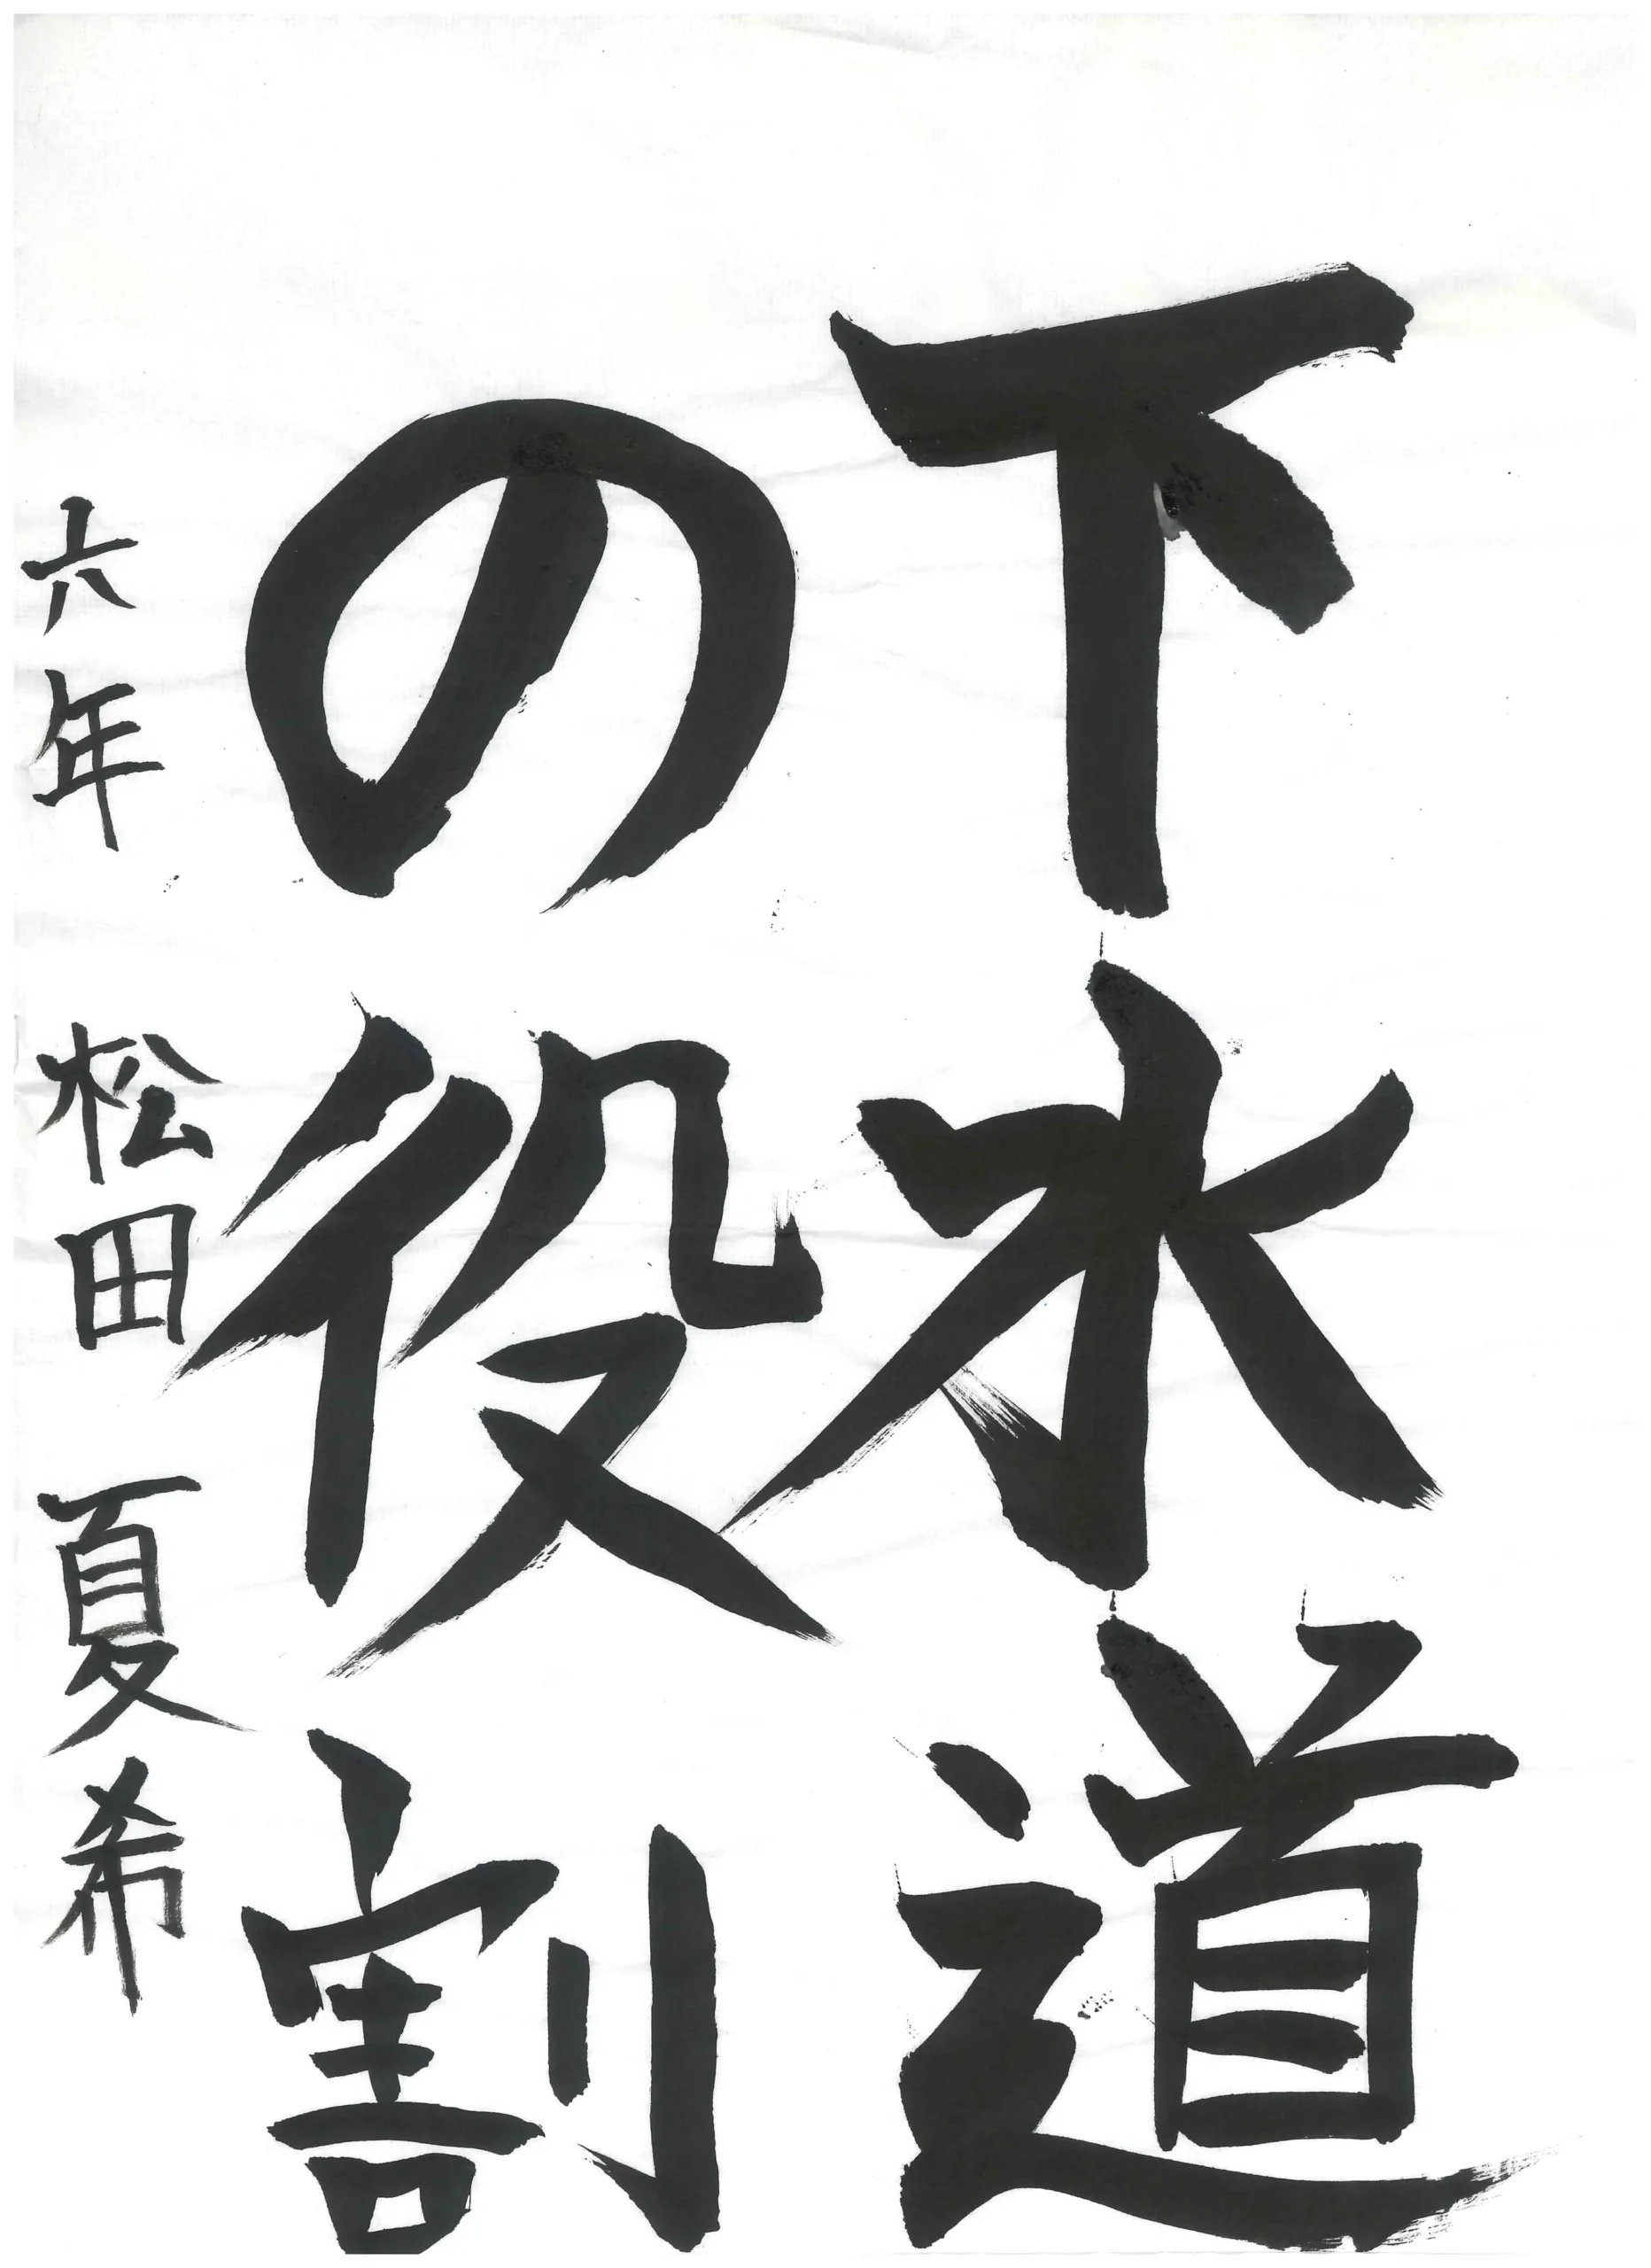 下水道
の役割
六年 松田 夏希